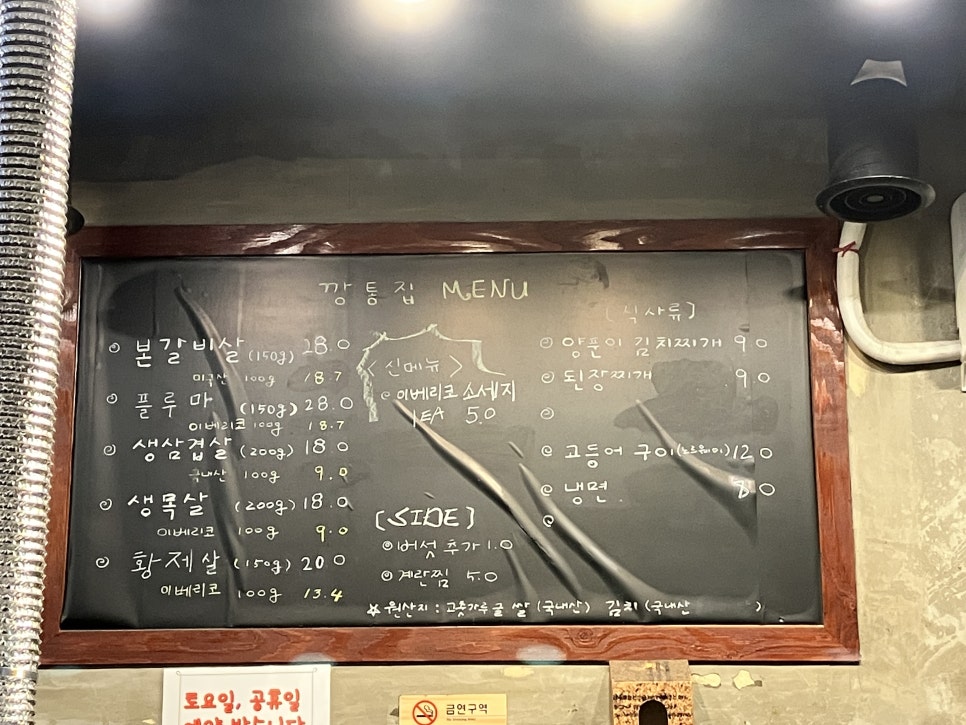 깡통집 MENU
본갈비살 (150g) 28.0
미국산 100g 18.7
플루마 (150g) 28.0
이베리코 100g 18.7
생삼겹살 (200g) 18.0
국내산 100g 9.0
생목살 (200g) 18.0
이베리코 100g 9.0
황제살 (150g) 20.0
이베리코 100g 13.4
<신메뉴>
이베리코 소세지
1EA 5.0
[SIDE]
버섯 추가 1.0
계란찜 5.0
[식사류]
양푼이 김치찌개 9.0
된장찌개 9.0
고등어 구이 (노르웨이) 12.0
냉면 8.0
☆원산지 : 고춧가루 쌀 (국내산) 김치 (국내산 )
토요일, 공휴일
금연구역